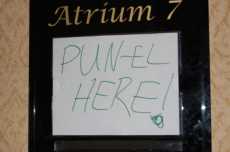 Atrium 7
PUN-EL
HERE!